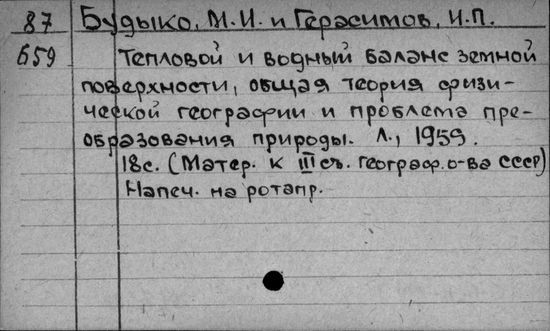 87 Будыко, М.И. и Герасимов, И.П.
Б59 Тепловой и водный баланс земной
поверхности, общая теория физи-
ческой географии и проблема пре-
образования природы. Л., 1959.
18с. (Матер. к III съ. географ. о-ва СССР)
Напеч. на ротапр.